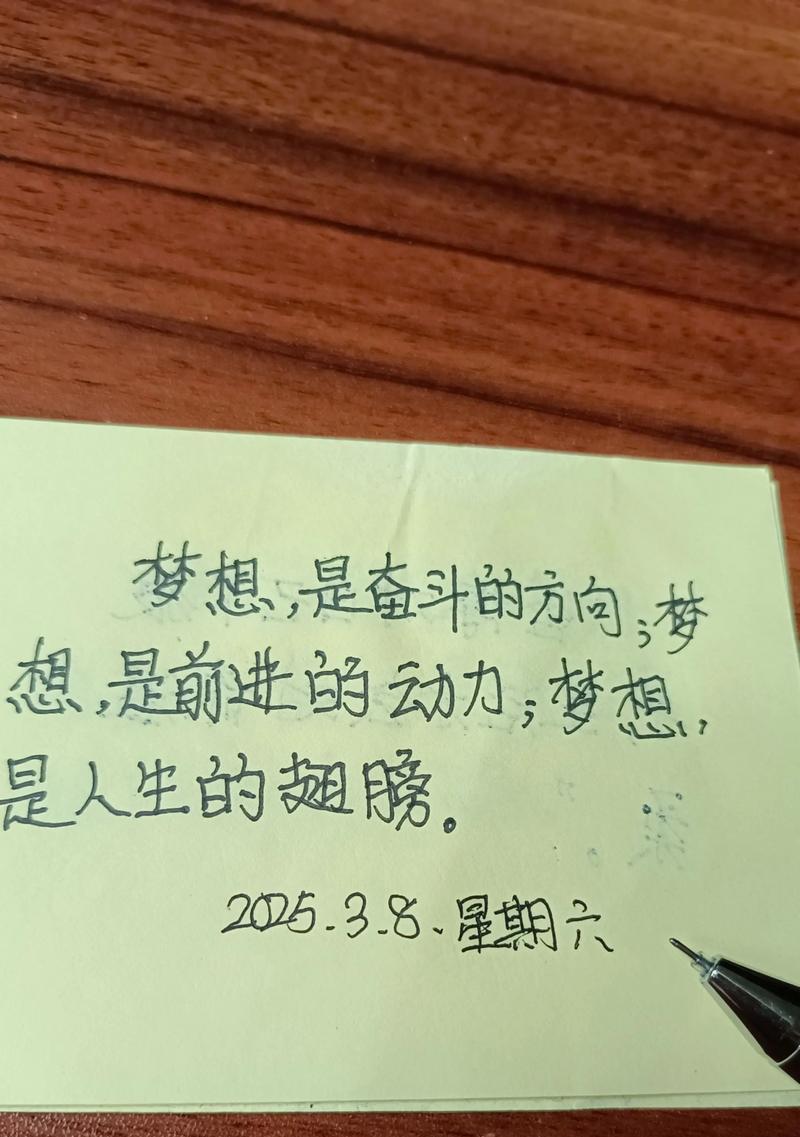 梦想,是奋斗的方向;梦
想,是前进的动力;梦想,
是人生的翅膀。
2025.3.8.星期六